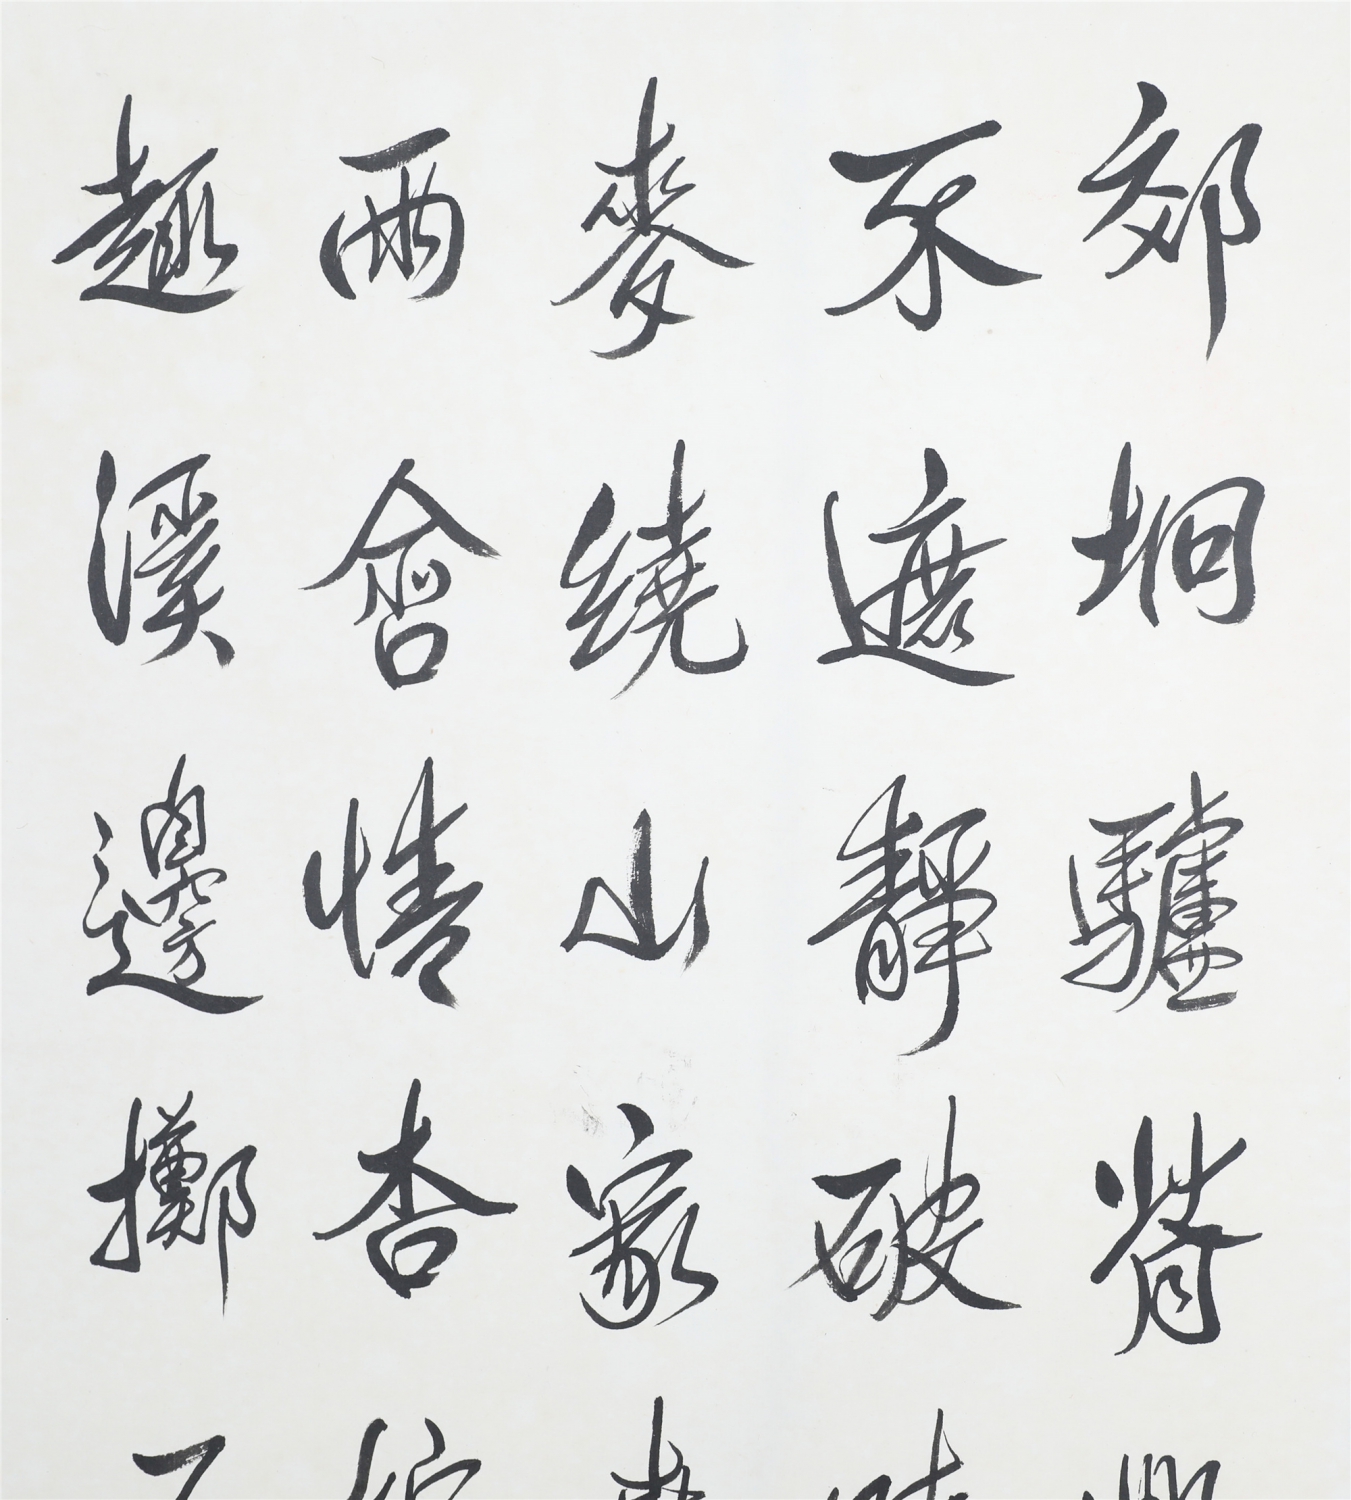 郊坰驢背
不遮靜破
麥繞山家
兩會情杏
趣溪邊擲